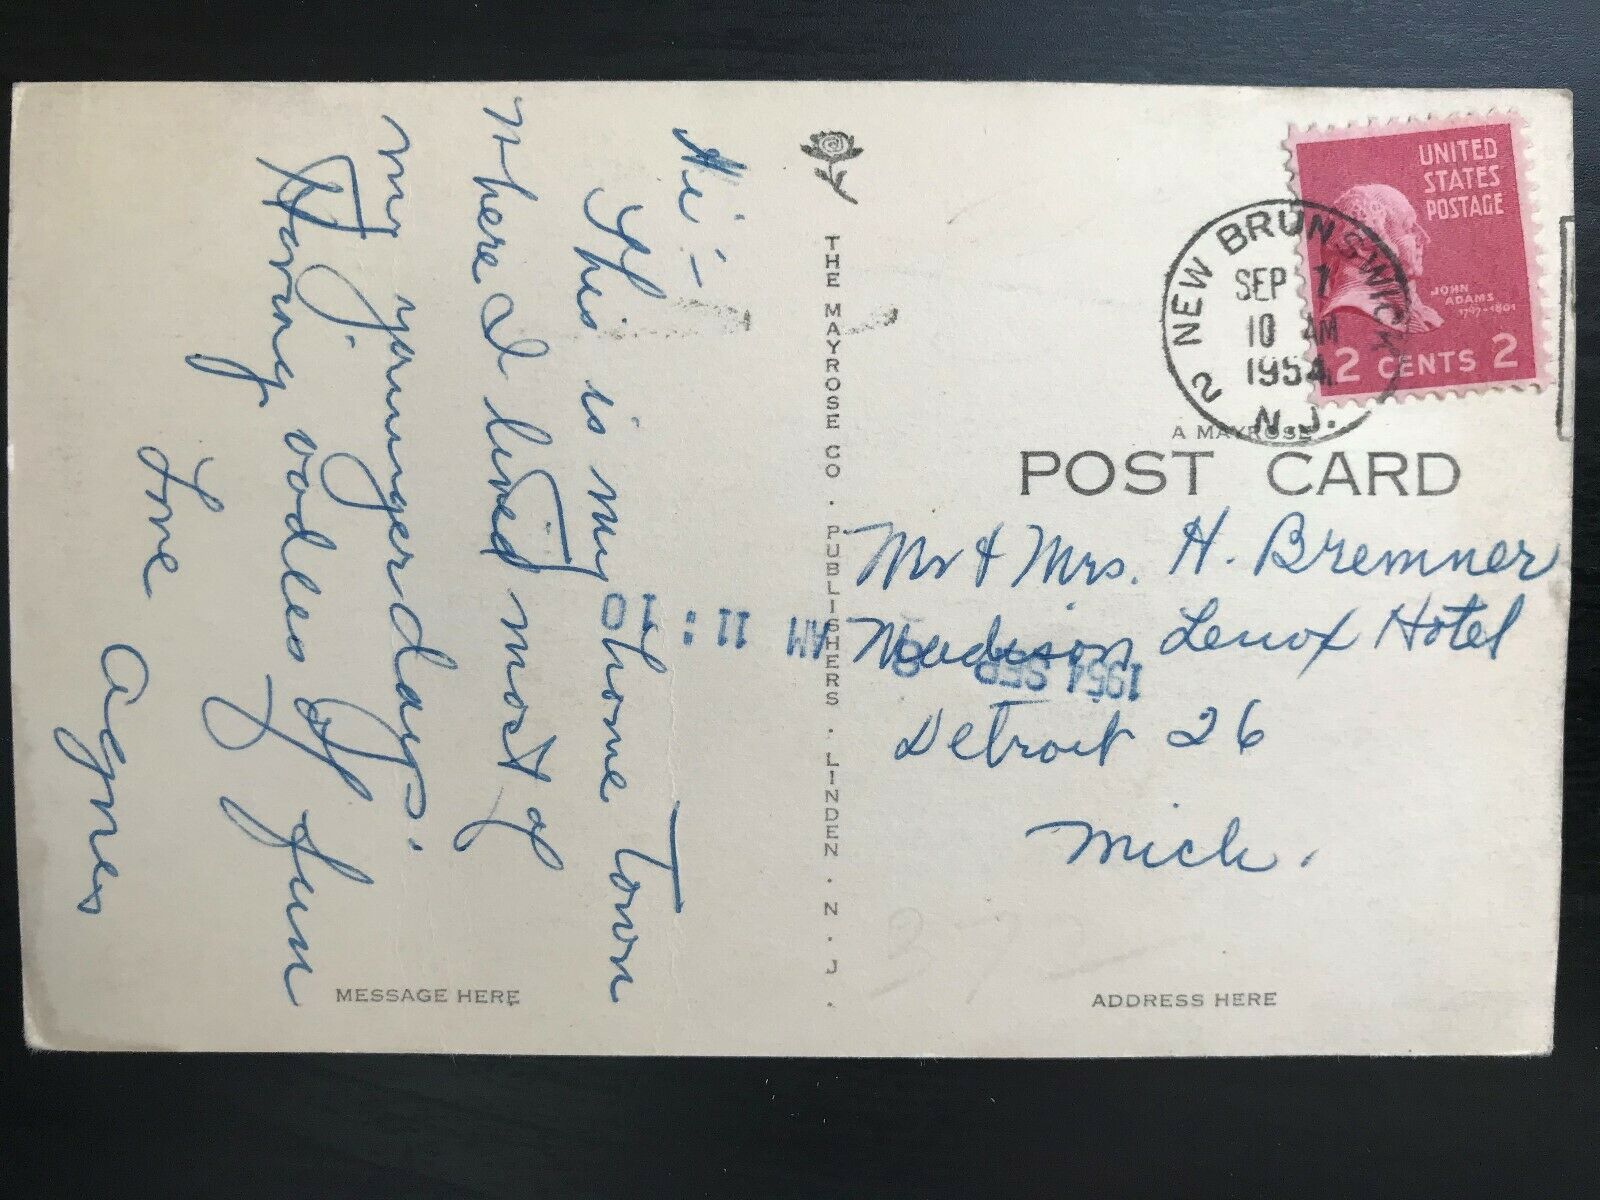 Hi -
This is my home Town
where I lived most of
my younger days.
Having oodles of fun
Love
Agnes
MESSAGE HERE
THE MAYROSE CO. PUBLISHERS. LINDEN. N. J.
UNITED
STATES
POSTAGE
JOHN
ADAMS
1797-1801
2 CENTS 2
NEW BRUNSWICK 2
SEP 7
10 AM
1954
N.J.
A MAYROSE
POST CARD
Mr & Mrs. H. Bremner
Madison Lenox Hotel
Detroit 26
Mich.
1954 SEP AM 11:10
ADDRESS HERE